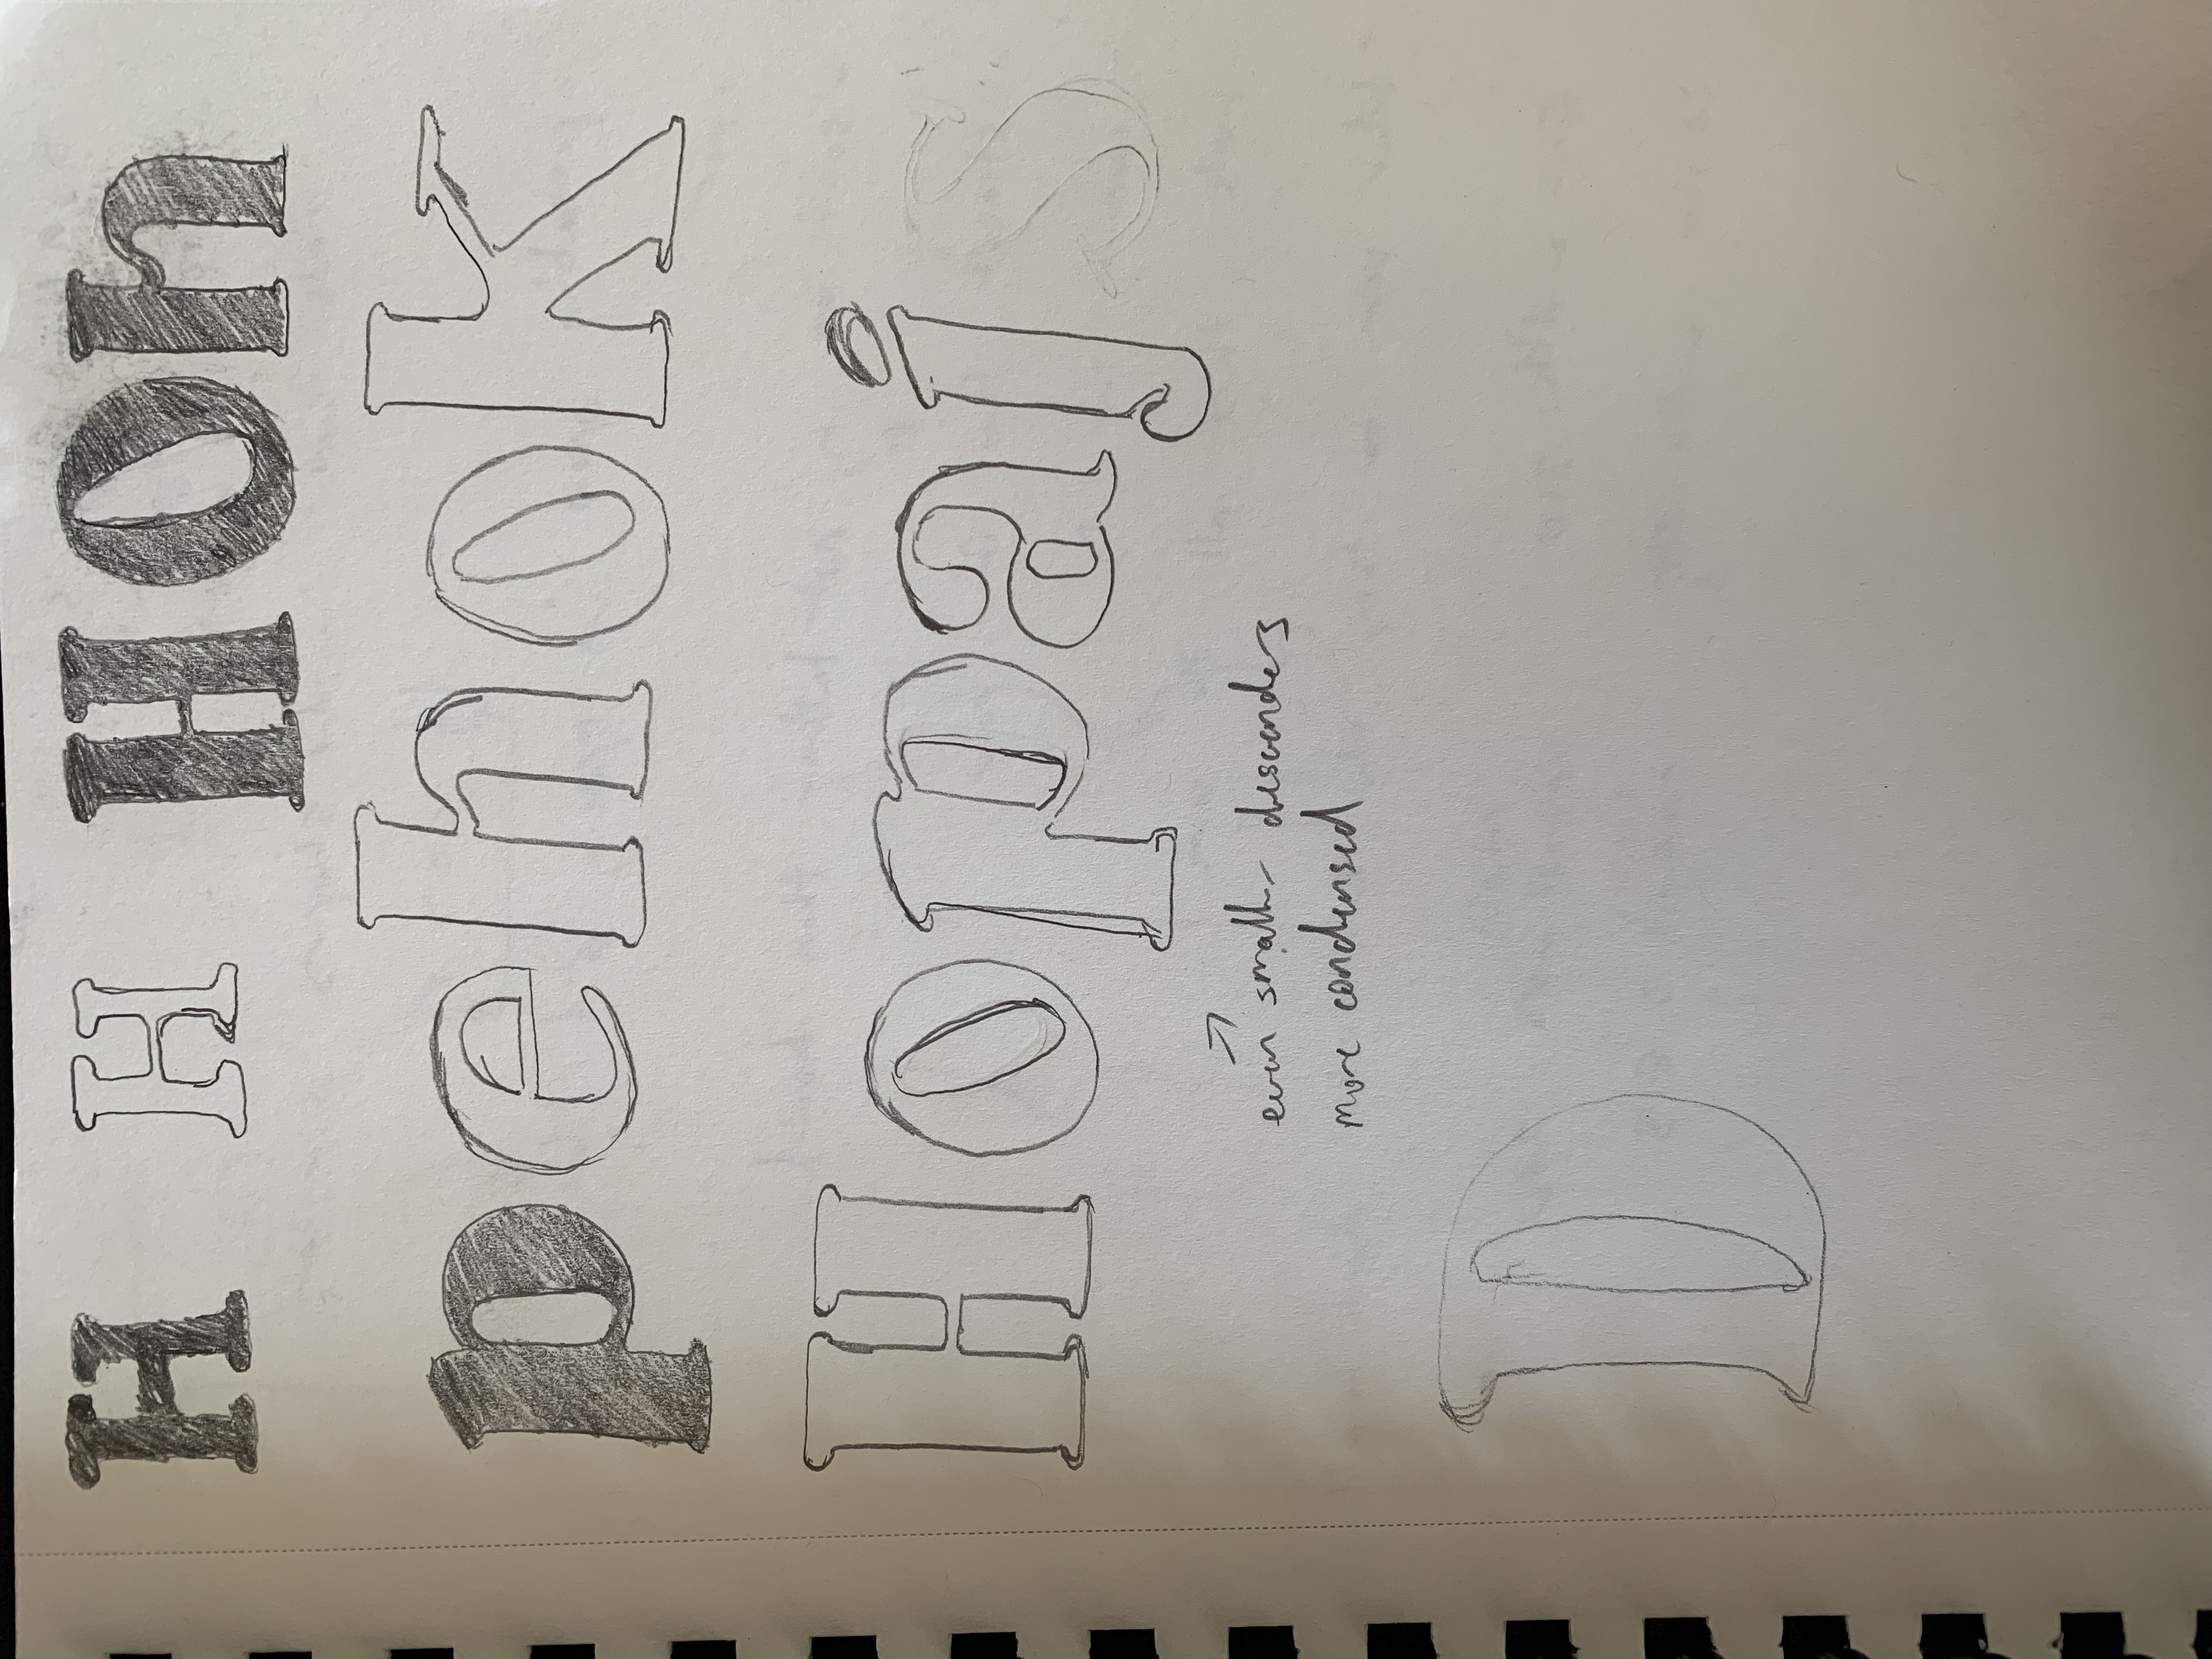 H H HOh
pehok
Hopajs
even smaller descenders
more condensed
D